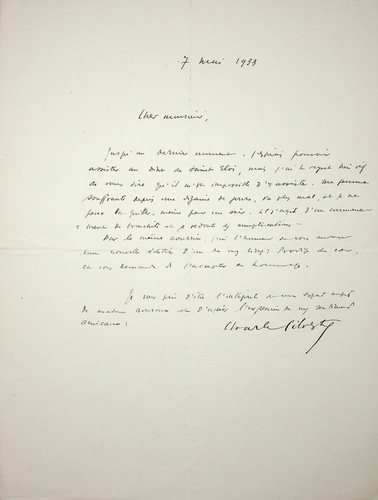 7 mai 1933
Cher monsieur,
Jusqu'au dernier moment j'espérais pouvoir
assister au dîner de Saint Eloi, mais j'ai le regret
de vous dire qu'il m'est impossible d'y assister. Ma femme
souffrante depuis une dizaine de jours, va plus mal, et je ne
peux la quitter, même pour un soir. Il s'agit d'un commence-
ment de bronchite et je redoute des complications.
Par le même courrier, j'ai l'honneur de vous envoyer
une nouvelle édition d'un de mes livres: du cœur,
en vous demandant de l'accepter en hommage.
Je vous prie d'être l'interprète de mon respect auprès
de madame et d'agréer l'expression de mes sentiments
amicaux: